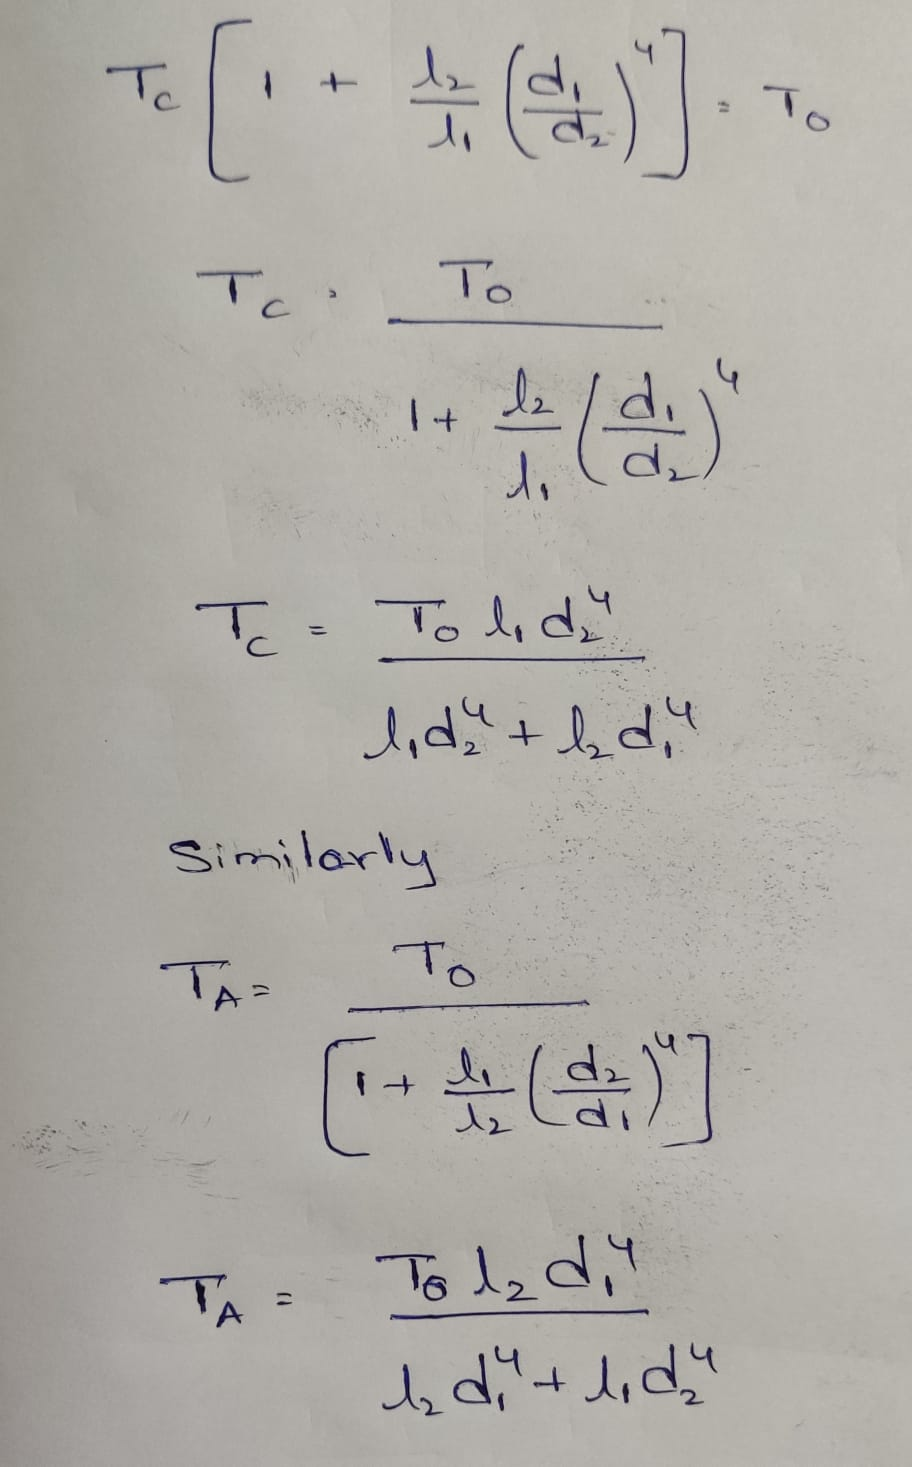 T_C [ 1 + l₂/l₁ (d₁/d₂)⁴ ] = T₀
T_C = T₀ / (1 + l₂/l₁ (d₁/d₂)⁴)
T_C = T₀ l₁ d₂⁴ / (l₁d₂⁴ + l₂d₁⁴)
Similarly
T_A = T₀ / [1 + l₁/l₂ (d₂/d₁)⁴]
T_A = T₀ l₂ d₁⁴ / (l₂d₁⁴ + l₁d₂⁴)